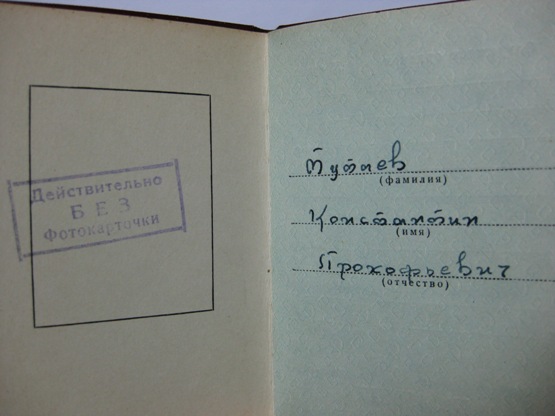 Действительно
БЕЗ
Фотокарточки
Тутаев
(фамилия)
Константин
(имя)
Прокофьевич
(отчество)